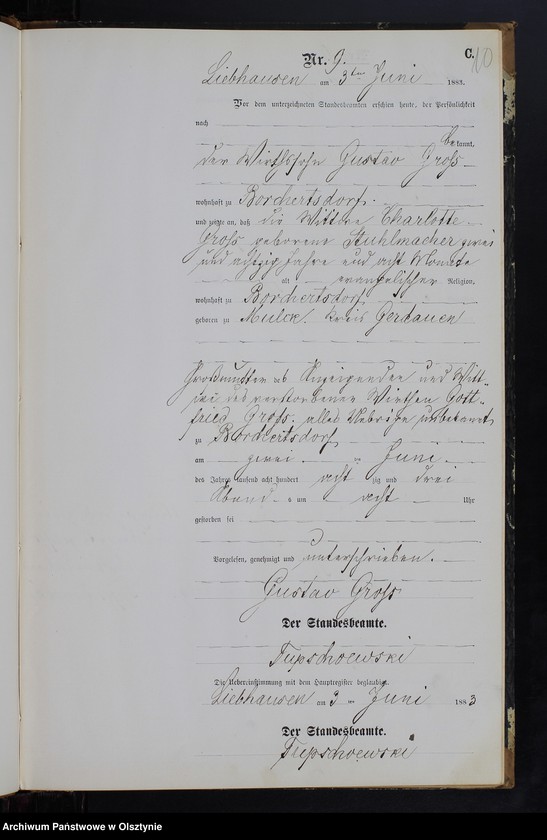 C.
10
Nr. 9.
Liebhausen am 3ten Juni 1883.
Vor dem unterzeichneten Standesbeamten erschien heute, der Persönlichkeit
nach
bekannt,
der Wirthssohn Gustav Groß
wohnhaft zu Borchertsdorf.
und zeigte an, daß die Wittwe Charlotte
Groß geborene Stuhlmacher, zwei
und achtzig Jahre und acht Monate
alt evangelischer Religion,
wohnhaft zu Borchertsdorf
geboren zu Mulck. Kreis Gerdauen
Großmutter des Anzeigenden und Witt-
we des verstorbenen Wirthen Gott-
fried Groß. alles Uebrige unbekannt
zu Borchertsdorf
am zwei ten Juni
des Jahres tausend acht hundert acht zig und drei
Abend s um acht Uhr
gestorben sei
Vorgelesen, genehmigt und unterschrieben.
Gustav Groß
Der Standesbeamte.
Tupschoewski
Die Uebereinstimmung mit dem Hauptregister beglaubigt.
Liebhausen am 3 ten Juni 1883
Der Standesbeamte.
Tupschoewski
Archiwum Państwowe w Olsztynie